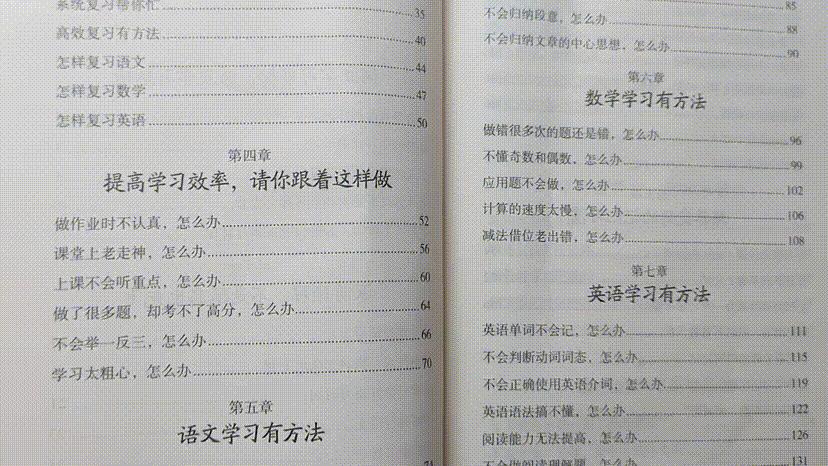 系统复习帮你忙 35
高效复习有方法 40
怎样复习语文 44
怎样复习数学 47
怎样复习英语 50
第四章
提高学习效率，请你跟着这样做
做作业时不认真，怎么办 52
课堂上老走神，怎么办 56
上课不会听重点，怎么办 60
做了很多题，却考不了高分，怎么办 64
不会举一反三，怎么办 66
学习太粗心，怎么办 70
第五章
语文学习有方法
85
不会归纳段意，怎么办 88
不会归纳文章的中心思想，怎么办 90
第六章
数学学习有方法
做错很多次的题还是错，怎么办 96
不懂奇数和偶数，怎么办 99
应用题不会做，怎么办 102
计算的速度太慢，怎么办 106
减法借位老出错，怎么办 108
第七章
英语学习有方法
英语单词不会记，怎么办 111
不会判断动词词态，怎么办 115
不会正确使用英语介词，怎么办 119
英语语法搞不懂，怎么办 122
阅读能力无法提高，怎么办 126
不会做阅读理解题，怎么办 131